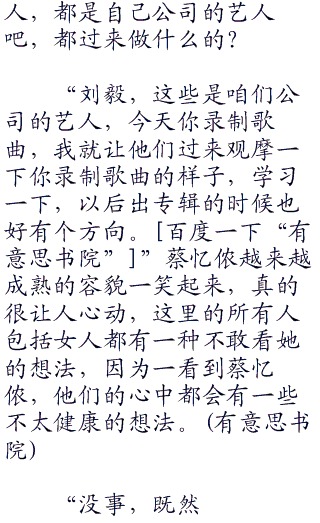 人，都是自己公司的艺人
吧，都过来做什么的？
“刘毅，这些是咱们公
司的艺人，今天你录制歌
曲，我就让他们过来观摩一
下你录制歌曲的样子，学习
一下，以后出专辑的时候也
好有个方向。[百度一下“有
意思书院”]”蔡忆侬越来越
成熟的容貌一笑起来，真的
很让人心动，这里的所有人
包括女人都有一种不敢看她
的想法，因为一看到蔡忆
侬，他们的心中都会有一些
不太健康的想法。(有意思书
院)
“没事，既然